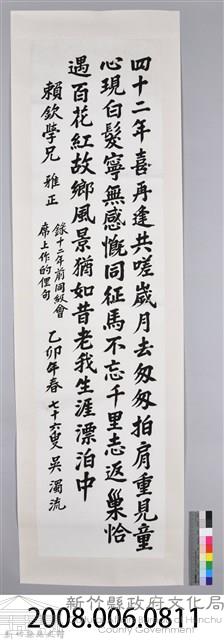 四十二年喜再逢共嗟歲月去匆匆拍肩重見童
心現白髮寧無感慨同征馬不忘千里志返巢恰
遇百花紅故鄉風景猶如昔老我生涯漂泊中
賴欽學兄 雅正
錄十二年前同級會
席上作的俚句
乙卯年春 七十六叟 吳濁流
新竹縣政府文化局
County Government
2008.006.0811